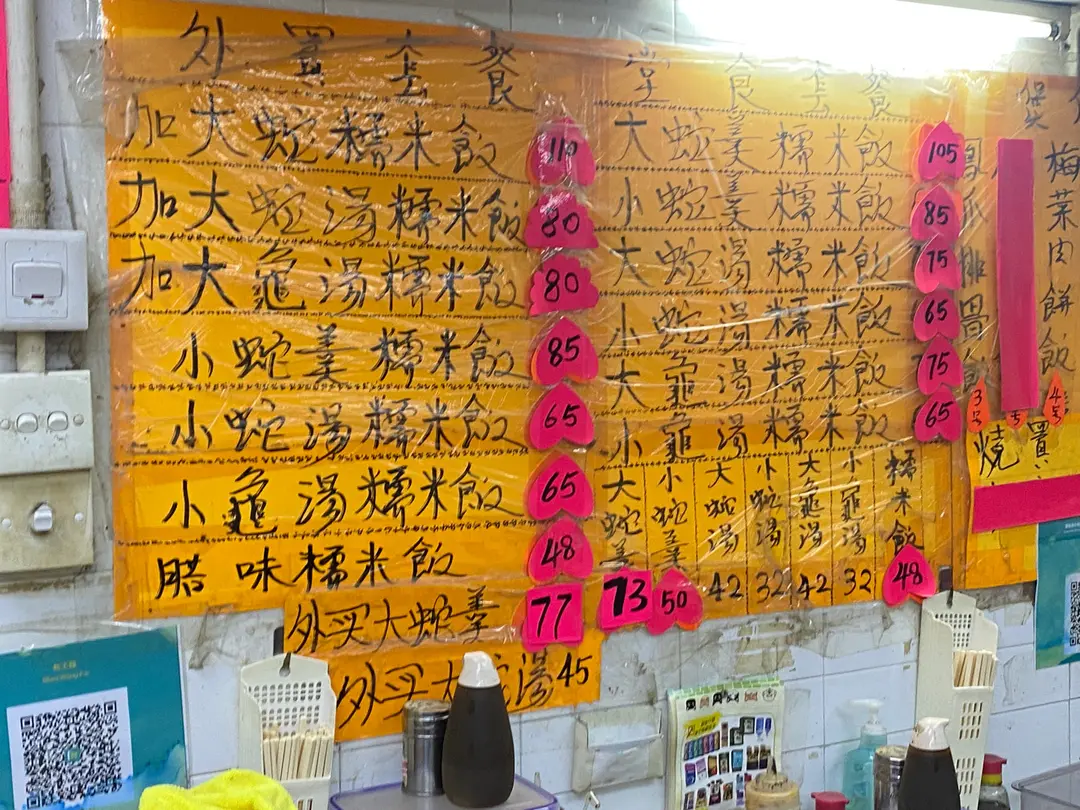 外賣套餐
加大蛇糯米飯 110
加大蛇湯糯米飯 80
加大龜湯糯米飯 80
小蛇羹糯米飯 85
小蛇湯糯米飯 65
小龜湯糯米飯 65
腊味糯米飯 48
外买大蛇羹 77
外买大蛇湯 45
堂食套餐
大蛇羹糯米飯 105
小蛇羹糯米飯 85
大蛇湯糯米飯 75
小蛇湯糯米飯 65
大龜湯糯米飯 75
小龜湯糯米飯 65
大蛇羹 73
小蛇羹 50
大蛇湯 42
小蛇湯 32
大龜湯 42
小龜湯 32
糯米飯 48
煲
鳳爪排骨飯
梅菜肉餅飯
燒賣